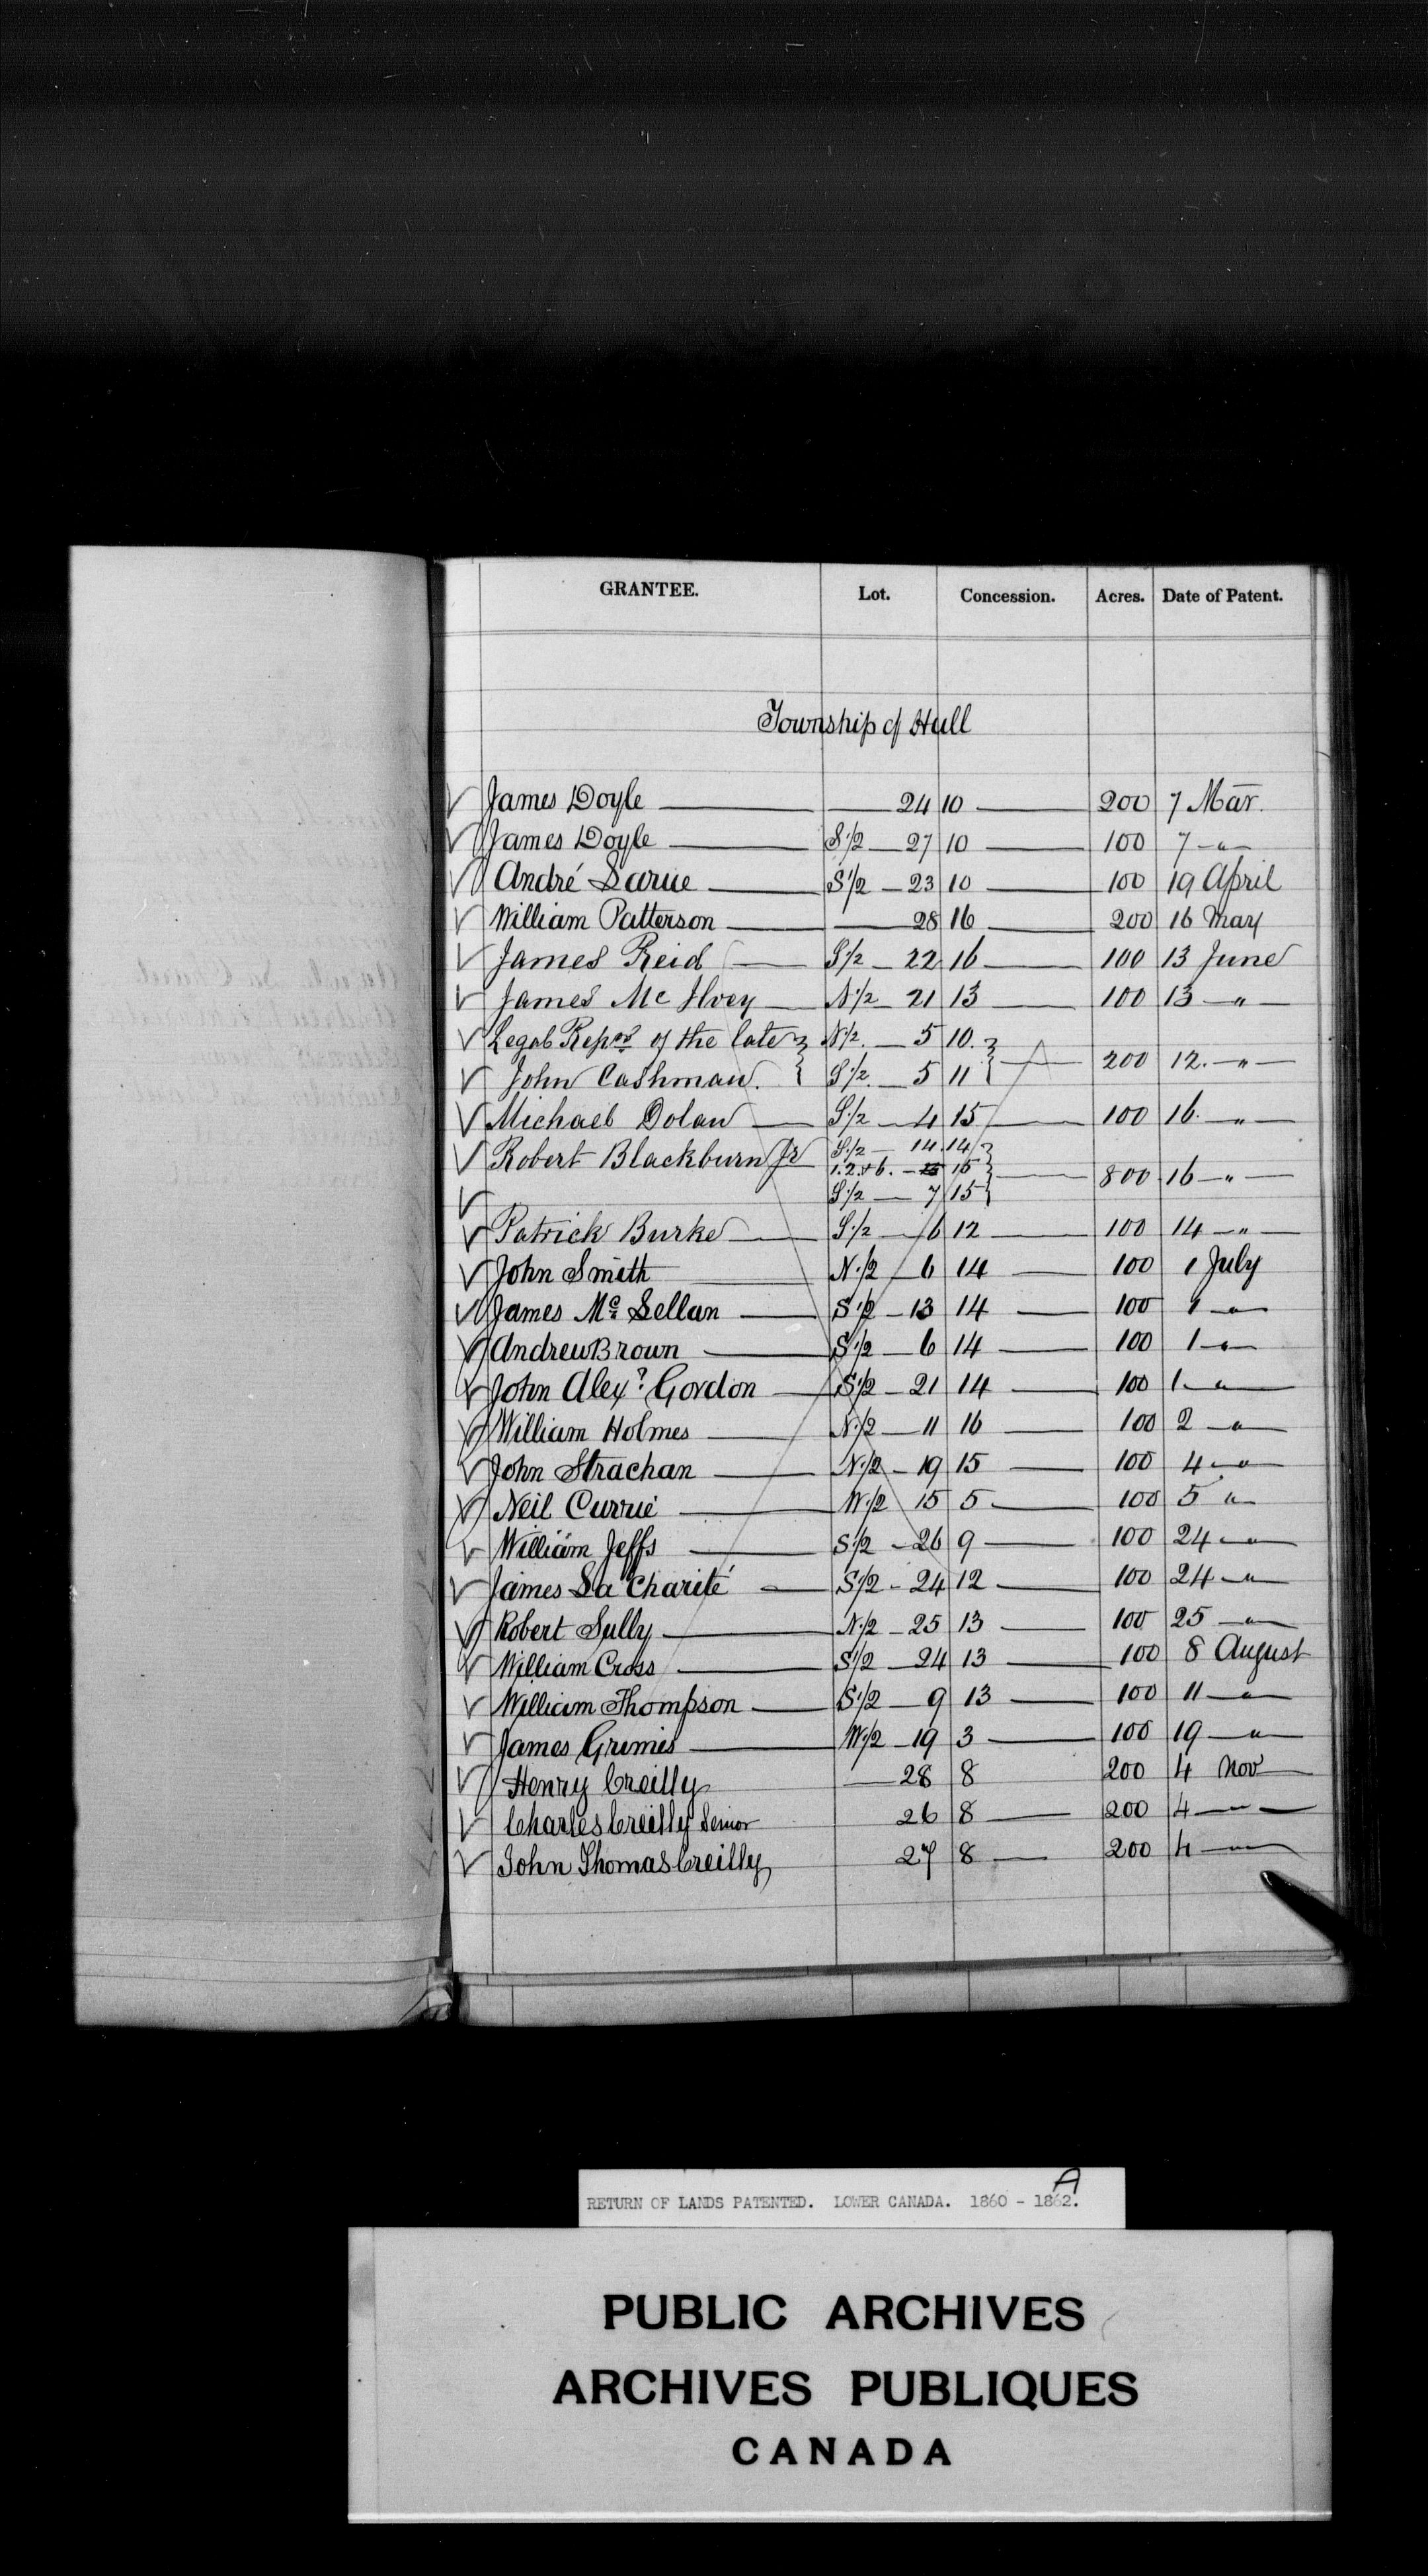 GRANTEE. Lot. Concession. Acres. Date of Patent.
Township of Hull
James Doyle 24 10 200 7 Mar.
James Doyle S 1/2 27 10 100 7 "
André Larue S 1/2 23 10 100 19 April
William Patterson 28 16 200 16 May
James Reid S 1/2 22 16 100 13 June
James Mc Ilvey N 1/2 21 13 100 13 "
Legal Reprs of the late N 1/2. 5 10.
John Cashman. S 1/2. 5 11 200 12. "
Michael Dolan S 1/2 4 15 100 16. "
Robert Blackburn Jr S 1/2 14 14
1. 2. & 6. 15 800 16 "
S 1/2 7 15
Patrick Burke S 1/2 6 12 100 14 "
John Smith N 1/2 6 14 100 1 July
James Mc Lellan S 1/2 13 14 100 1 "
Andrew Brown S 1/2 6 14 100 1 "
John Alexr Gordon S 1/2 21 14 100 1 "
William Holmes N 1/2 11 16 100 2 "
John Strachan N 1/2 19 15 100 4 "
Neil Currie W 1/2 15 5 100 5 "
William Jeffs S 1/2 26 9 100 24 "
James La Charité S 1/2 24 12 100 24 "
Robert Sully N 1/2 25 13 100 25 "
William Cross S 1/2 24 13 100 8 August
William Thompson S 1/2 9 13 100 11 "
James Grimes W 1/2 19 3 100 19 "
Henry Creilly 28 8 200 4 Nov
Charles Creilly Senior 26 8 200 4 "
John Thomas Creilly 27 8 200 4 "
A
RETURN OF LANDS PATENTED. LOWER CANADA. 1860 - 1862.
PUBLIC ARCHIVES
ARCHIVES PUBLIQUES
CANADA